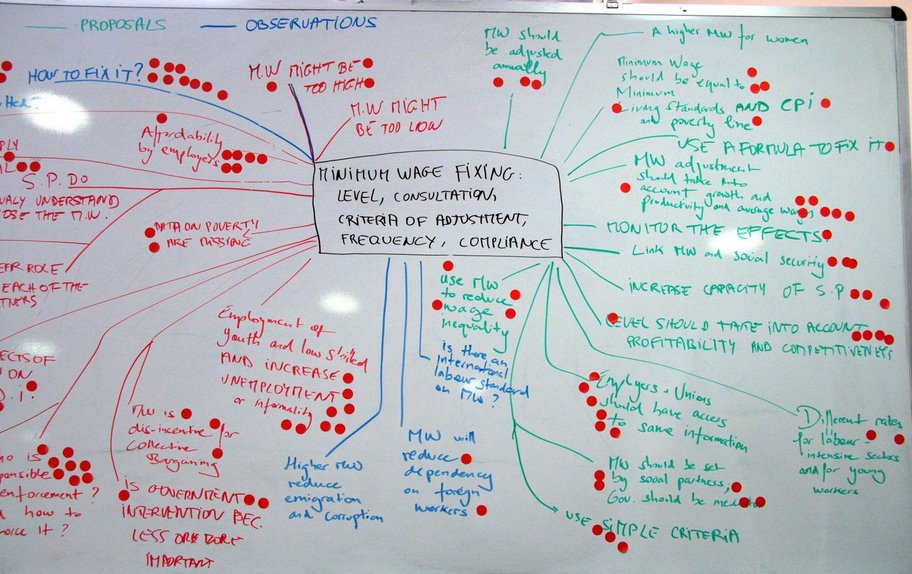 PROPOSALS
OBSERVATIONS
HOW TO FIX IT?
M.W MIGHT BE
TOO HIGH
M.W MIGHT
BE TOO LOW
Affordability
by employers
S.P. DO
UNDERSTAND
THE M.W.
DATA ON POVERTY
ARE MISSING
ROLE
EACH OF THE
Employment of
youth and low skilled
AND INCREASE
UNEMPLOYMENT
or informality
MW is
dis-incentive for
Collective
Bargaining
is
enforcement?
how to
it?
IS GOVERNMENT
INTERVENTION BEC.
LESS OR MORE
IMPORTANT
MINIMUM WAGE FIXING:
LEVEL, CONSULTATION,
CRITERIA OF ADJUSTMENT,
FREQUENCY, COMPLIANCE
Higher MW
reduce
emigration
and corruption
MW will
reduce
dependency
on foreign
workers
is there an
international
labour standard
on MW?
use MW
to reduce
wage
inequality
MW should
be adjusted
annually
A higher MW for women
Minimum Wage
should be equal to
Minimum
Living Standards AND CPI
and poverty line
USE A FORMULA TO FIX IT
MW adjustment
should take into
account growth and
productivity and average wages
MONITOR THE EFFECTS
Link MW and social security
INCREASE CAPACITY OF S.P
LEVEL SHOULD TAKE INTO ACCOUNT
PROFITABILITY AND COMPETITIVENESS
Different rates
for labour -
intensive sectors
and for young
workers
Employers + Unions
should have access
to same information
MW should be set
by social partners,
Gov. should be mediator
USE SIMPLE CRITERIA